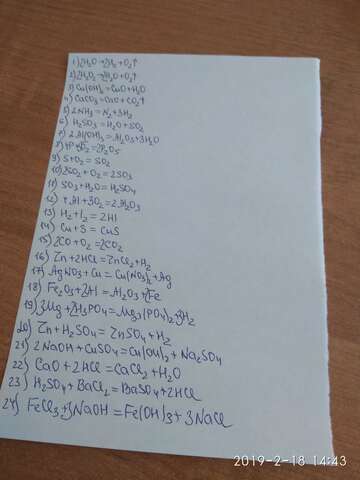 1) 2H₂O=2H₂+O₂↑
2) 2H₂O₂=2H₂O+O₂↑
3) Cu(OH)₂=CuO+H₂O
4) CaCO₃=CaO+CO₂↑
5) 2NH₃=N₂+3H₂
6) H₂SO₃=H₂O+SO₂
7) 2Al(OH)₃=Al₂O₃+3H₂O
8) 4P+5O₂=2P₂O₅
9) S+O₂=SO₂
10) 2SO₂+O₂=2SO₃
11) SO₃+H₂O=H₂SO₄
12) 4Al+3O₂=2Al₂O₃
13) H₂+I₂=2HI
14) Cu+S=CuS
15) 2CO+O₂=2CO₂
16) Zn+2HCl=ZnCl₂+H₂
17) AgNO₃+Cu=Cu(NO₃)₂+Ag
18) Fe₂O₃+2Al=Al₂O₃+2Fe
19) 3Mg+2H₃PO₄=Mg₃(PO₄)₂+3H₂
20) Zn+H₂SO₄=ZnSO₄+H₂
21) 2NaOH+CuSO₄=Cu(OH)₂+Na₂SO₄
22) CaO+2HCl=CaCl₂+H₂O
23) H₂SO₄+BaCl₂=BaSO₄+2HCl
24) FeCl₃+3NaOH=Fe(OH)₃+3NaCl
2019-2-18 14:43